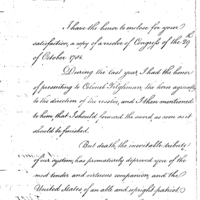 I have the honor to inclose for your
satisfaction, a copy of a resolve of Congress of the 29th
of October 1785.
During the last year, I had the honor
of presenting to Colonel Tilghman, the horse agreeably
to the direction of the resolve, and I then mentioned
to him that I should forward the sword as soon as it
should be finished.
But death, the inevitable tribute
of our system, has prematurely deprived you of the
most tender and virtuous companion, and the
United States of an able and upright patriot